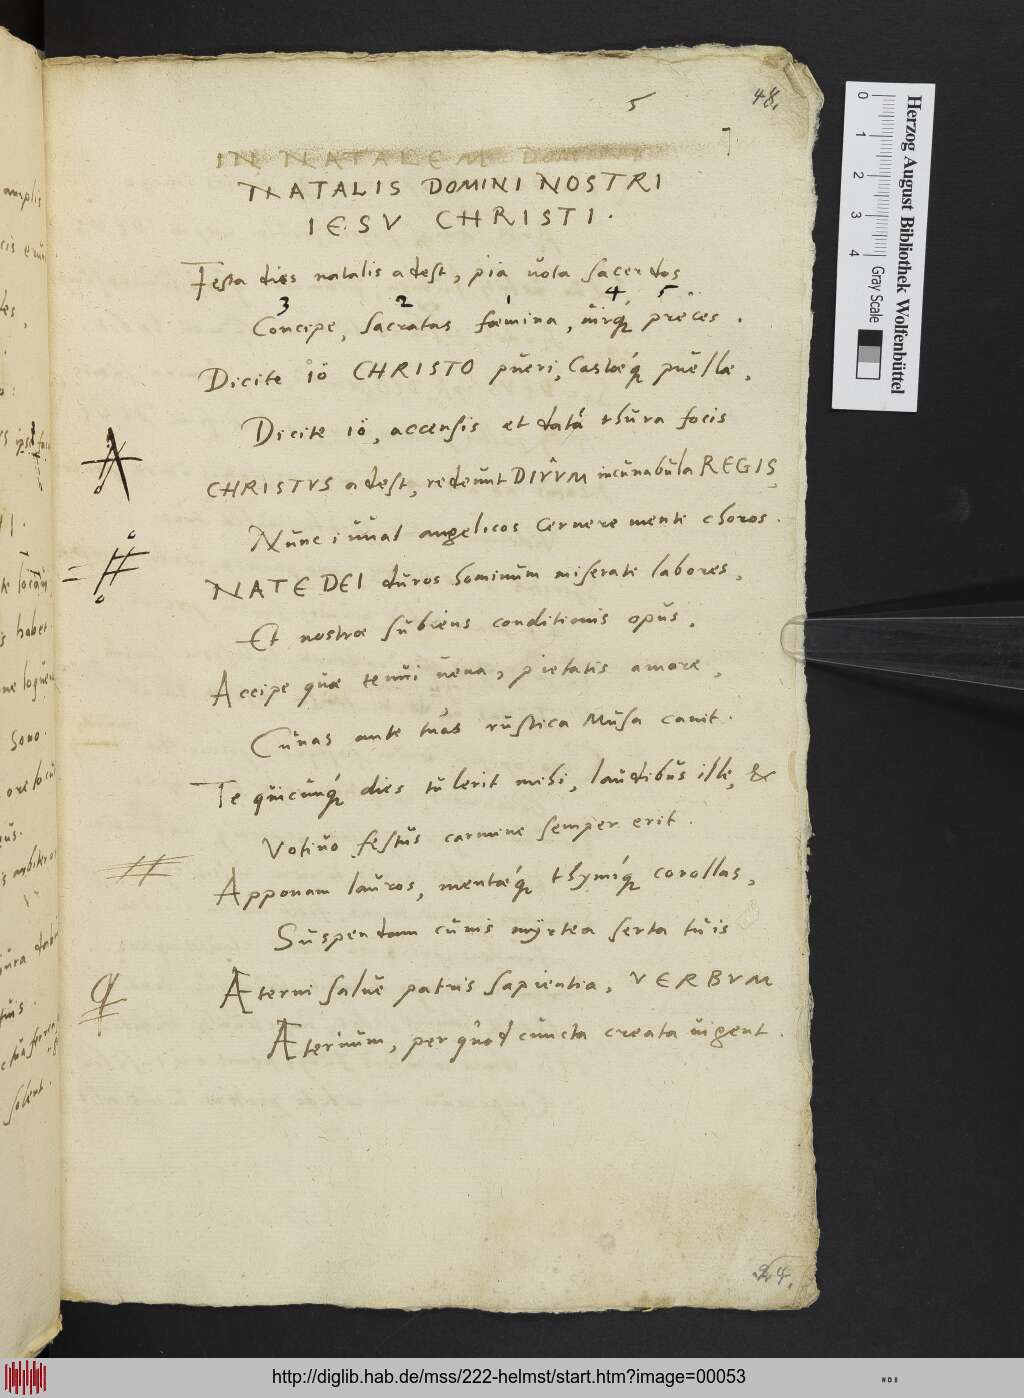 5 48.
7.
IN NATALEM DOMINI
NATALIS DOMINI NOSTRI
IESV CHRISTI.
Festa dies natalis adest, pia uota sacerdos
3 2 1 4 5
Concipe, sacratas fœmina, uirq́ꝫ preces.
Dicite iö CHRISTO pueri, Castæq́ꝫ puellæ,
Dicite iö, accensis et data thura focis
CHRISTVS adest, redeunt DIVVM incunabula REGIS,
Nunc iuuat angelicos cernere mente choros.
NATE DEI duros hominum miserate labores,
Et nostræ subiens conditionis opus.
Accipe quæ tenui uena, pietatis amore,
Cunas ante tuas rustica Musa canit.
Te quicunq́ꝫ dies tulerit mihi, laudibus ille, &
Votiuo festus carmine semper erit.
Apponam lauros, mentæq́ꝫ thymiq́ꝫ corollas,
Suspendam cunis myrtea serta tuis
Æterni salue patris sapientia, VERBVM
Æternum, per quod cuncta creata uigent.
24.
amplis
habet
sono.
solent.
Herzog August Bibliothek Wolfenbüttel
0 1 2 3 4 Gray Scale
http://diglib.hab.de/mss/222-helmst/start.htm?image=00053